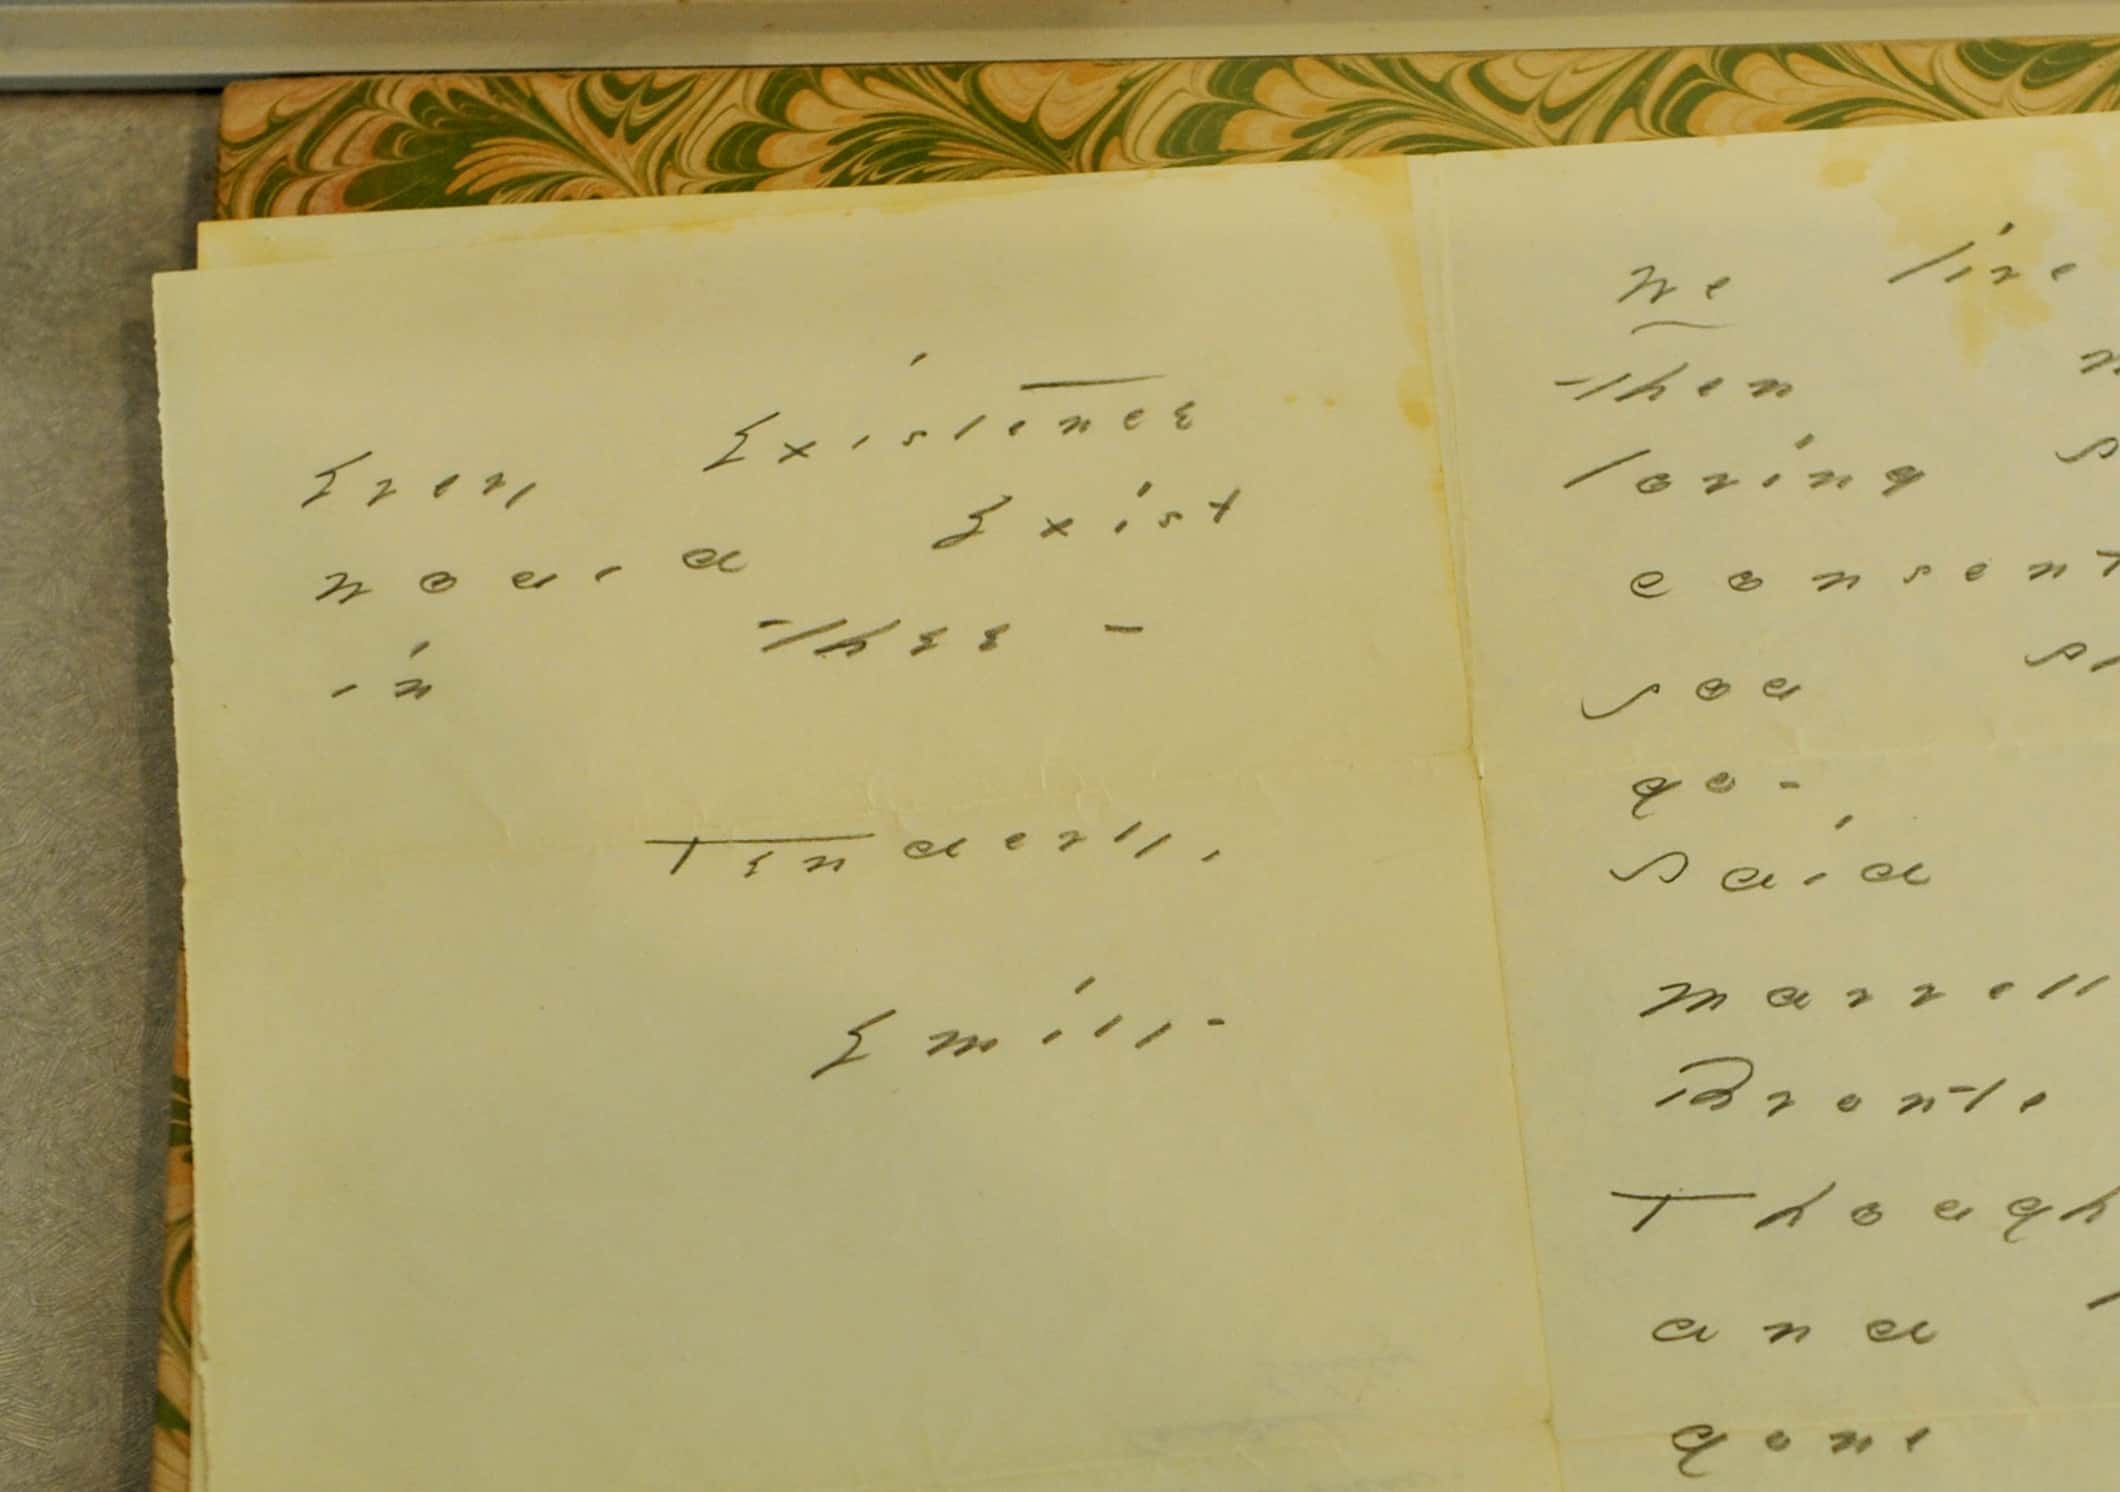 Every Existence
would Exist
in Thee -
Tenderly,
Emily -
We live
then
loving
consent
you
go -
said
marvell
Bronte
Though
and
gone